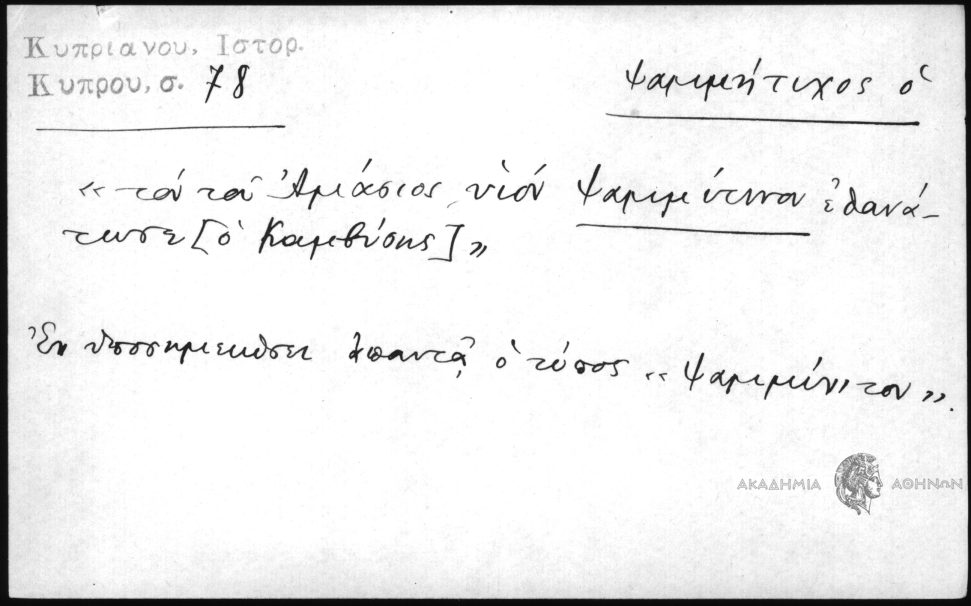 Κυπριανου, Ιστορ.
Κυπρου, σ. 78
Ψαμμήτιχος ὁ
« τὸν τοῦ Ἀμάσιος υἱὸν Ψαμμύτινα ἐθανά-
τωσε [ὁ Καμβύσης] »
Ἐν ὑποσημειώσει ἀπαντᾷ ὁ τύπος « Ψαμμύνιτον ».
ΑΚΑΔΗΜΙΑ ΑΘΗΝΩΝ